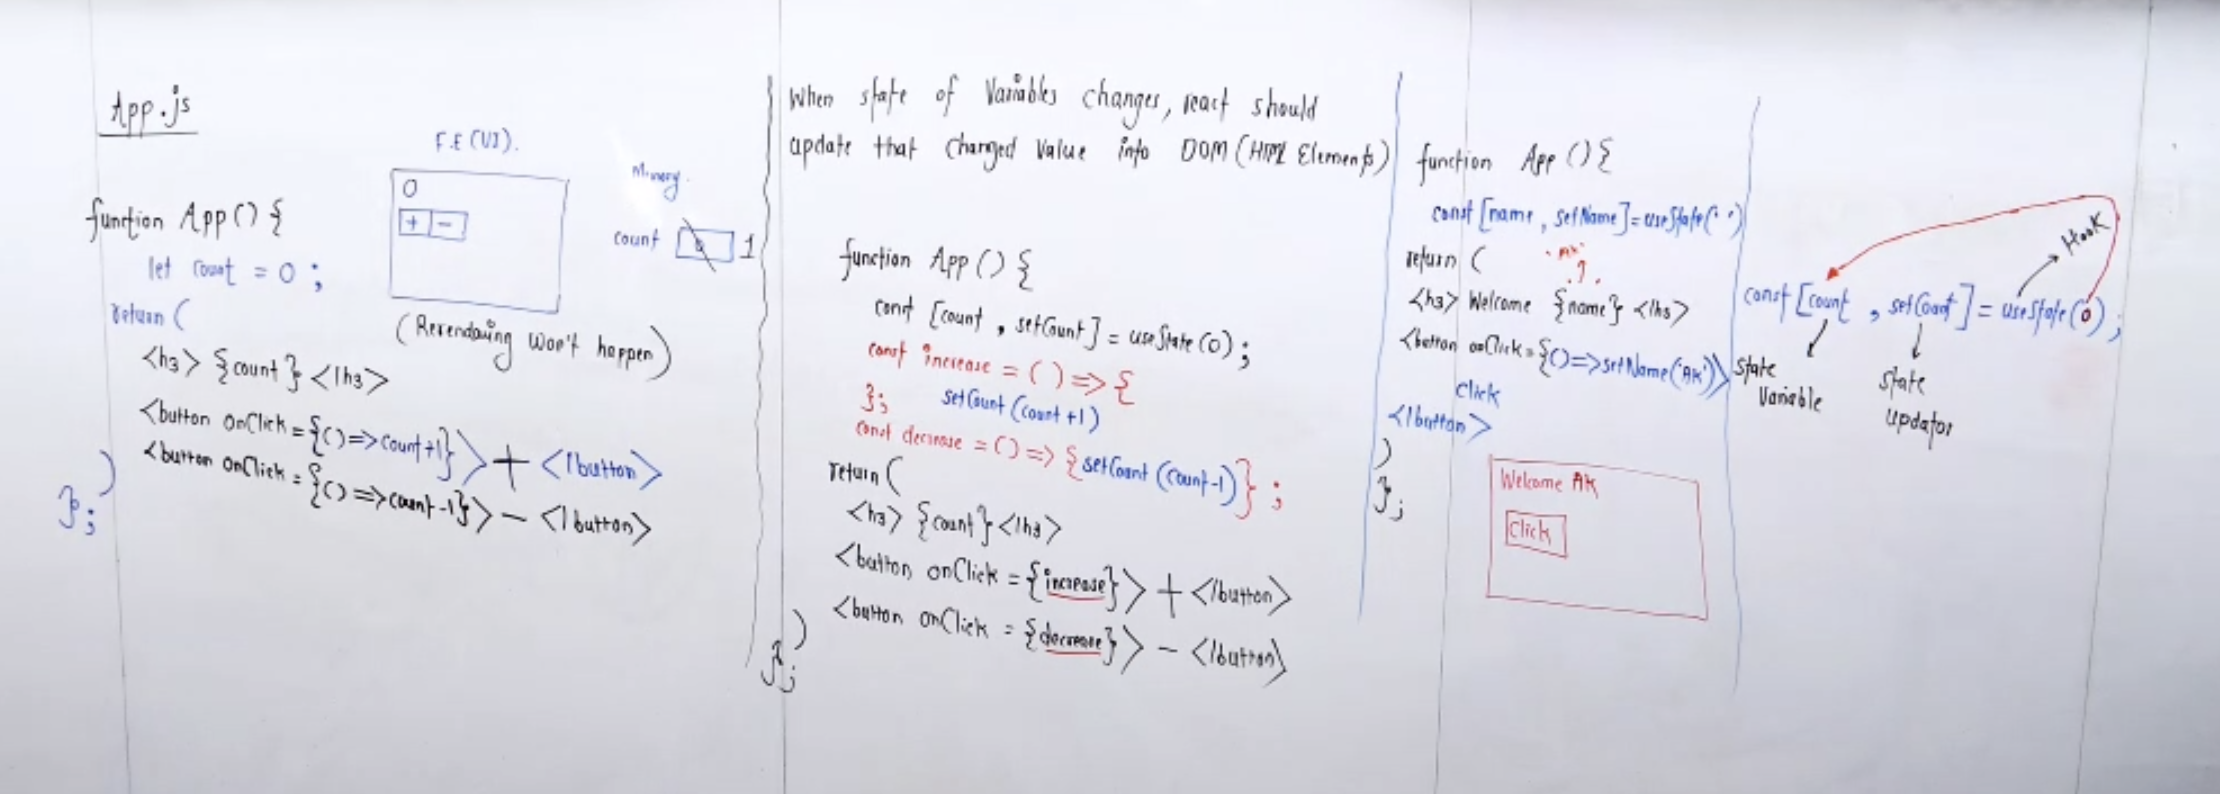 App.js
F.E (UI).
0
+ -
Memory.
count 0 1
(Rerendaring Won't happen)
function App () {
let count = 0 ;
return (
<h3> {count} </h3>
<button onClick = {() => count+1}> + </button>
<button onClick = {() => count-1}> - </button>
)
};
When state of Variables changes, react should
update that changed value into DOM (HTML Elements)
function App () {
const [count , setCount] = useState (0) ;
const increase = ( ) => {
setCount (count +1)
};
const decrease = () => {setCount (count-1)} ;
return (
<h3> {count} </h3>
<button onClick = {increase}> + </button>
<button onClick = {decrease}> - </button>
)
};
function App () {
const [name , setName] = useState(' ')
return (
'AK'
<h3> Welcome {name} </h3>
<button onClick = {() => setName('AK')}>
Click
</button>
)
};
Welcome AK
Click
Hook
const [count , setCount] = useState (0) ;
State
Variable
State
Updator